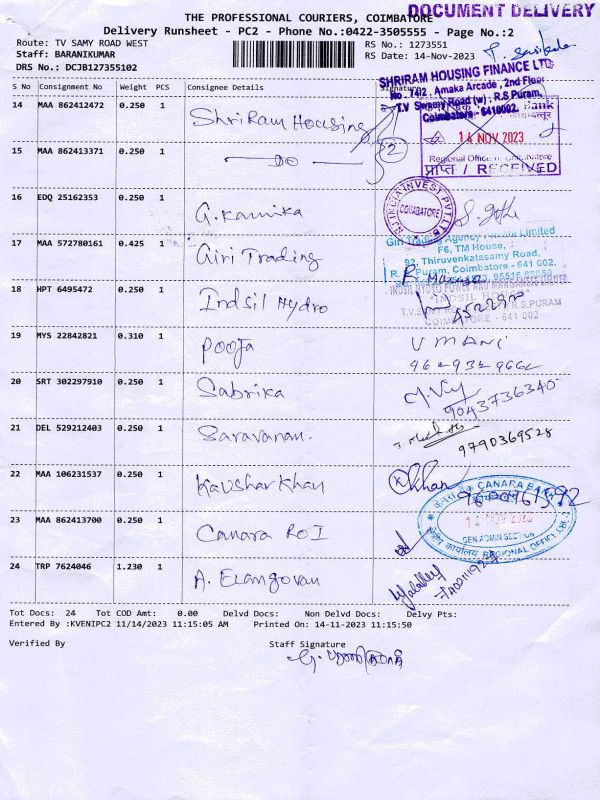 DOCUMENT DELIVERY
THE PROFESSIONAL COURIERS, COIMBATORE
Delivery Runsheet - PC2 - Phone No.:0422-3505555 - Page No.:2
Route: TV SAMY ROAD WEST
RS No.: 1273551
Staff: BARANIKUMAR
RS Date: 14-Nov-2023
DRS No.: DCJB127355102
S No Consignment No Weight PCS Consignee Details Signature
SHRIRAM HOUSING FINANCE LTD
No. 14/2, Amaka Arcade, 2nd Floor
T.V Swamy Road (w), R.S Puram,
Coimbatore - 641002.
14 MAA 862412472 0.250 1 ShriRam Housing
Bank
14 NOV 2023
15 MAA 862413371 0.250 1 — do — 2
Regional Office Coimbatore
प्राप्त / RECEIVED
16 EDQ 25162353 0.250 1
INDIA INVEST PVT LTD
COIMBATORE
17 MAA 572780161 0.425 1 Giri Trading
Giri Trading Agency Private Limited
F6, TM House,
Thiruvenkatasamy Road,
R.S. Puram, Coimbatore - 641 002.
18 HPT 6495472 0.250 1 Indsil Hydro
R.S.PURAM
COIMBATORE - 641 002
19 MYS 22842821 0.310 1 Pooja
UMANI
20 SRT 302297910 0.250 1 Sabrika
9043736340
21 DEL 529212403 0.250 1 Saravanan.
9790369528
22 MAA 106231537 0.250 1 Kausharkhan
Khan
CANARA BANK
23 MAA 862413700 0.250 1 Canara RO I
NOV 2023
GEN ADMIN SECTION
REGIONAL OFFICE
24 TRP 7624046 1.230 1 A. Elangovan
Tot Docs: 24 Tot COD Amt: 0.00 Delvd Docs: Non Delvd Docs: Delvy Pts:
Entered By :KVENIPC2 11/14/2023 11:15:05 AM Printed On: 14-11-2023 11:15:50
Verified By Staff Signature